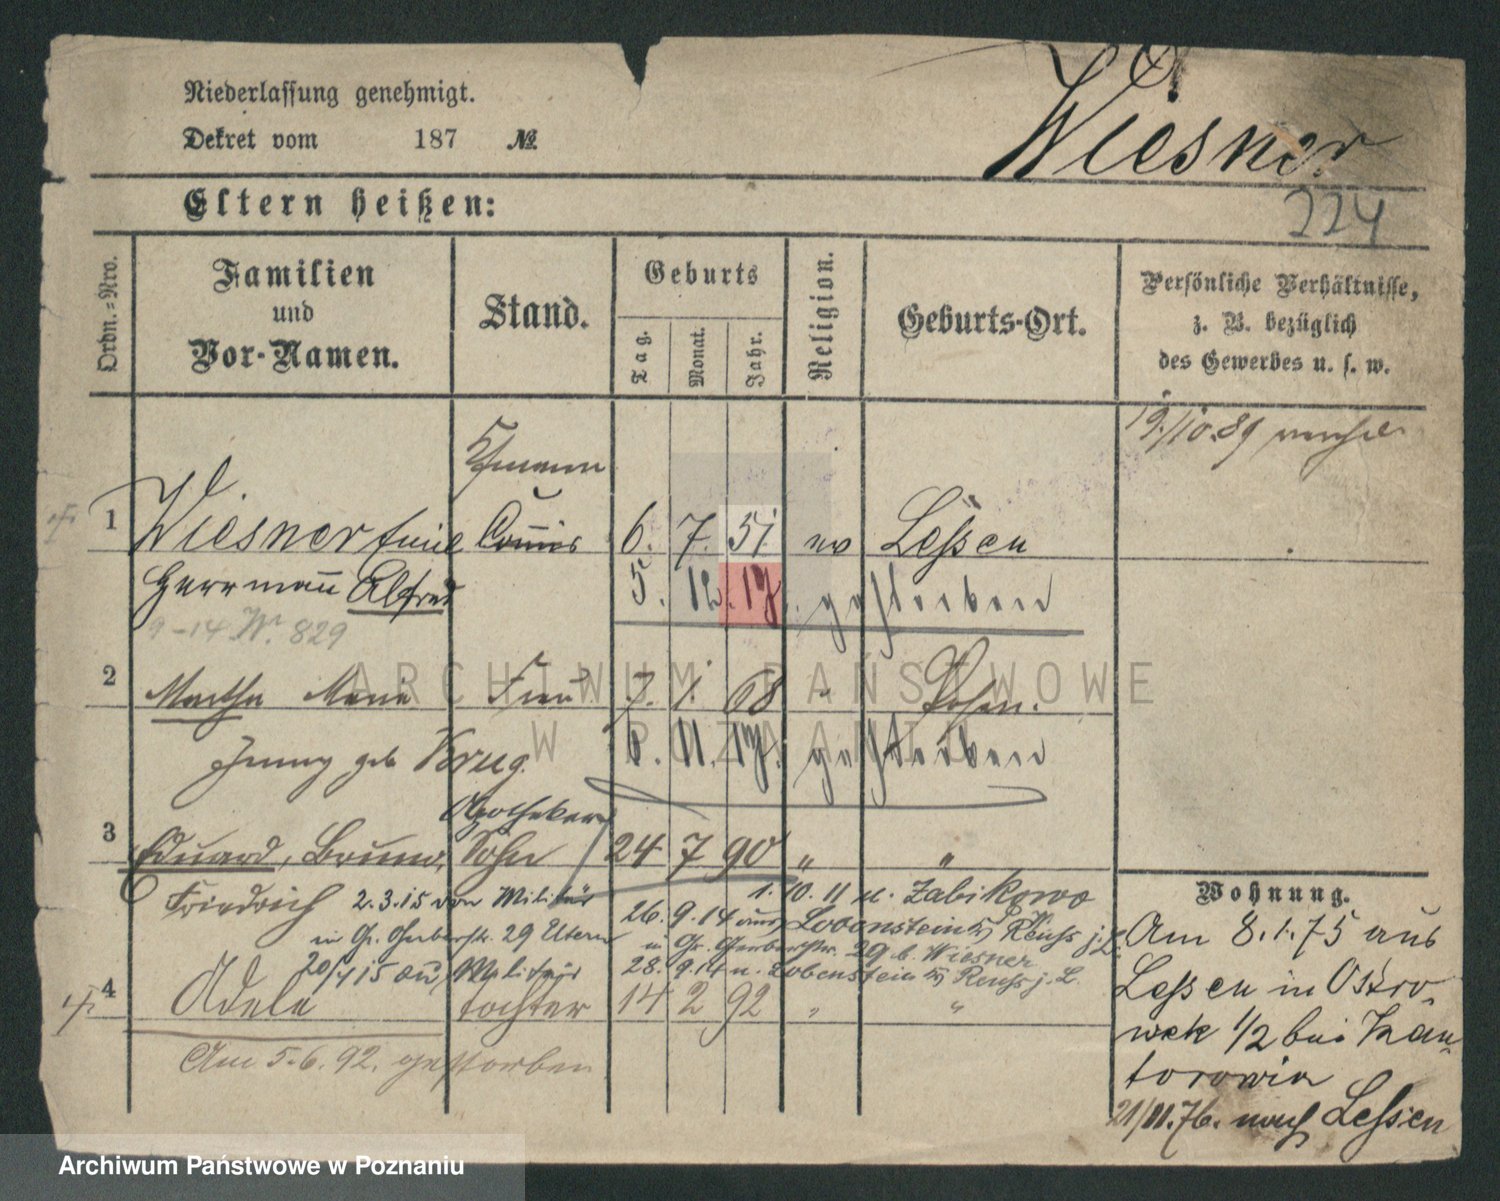 Niederlassung genehmigt.
Dekret vom 187 №
Wiesner
224
Eltern heißen:
Ordn.-Nro.
Familien
und
Vor-Namen.
Stand.
Geburts
Tag.
Monat.
Jahr.
Religion.
Geburts-Ort.
Persönliche Verhältnisse,
z. B. bezüglich
des Gewerbes u. s. w.
19./10.89
1 Wiesner Emil Commis 6. 7. 51. ev Lessen
Herrmañ Alfred 5. 12. 19. gestorben
9-14 829
2 Martha Maria Frau 7. 1. 68 " Posen.
Jenny geb Krug. 6. 11. 19. gestorben
Apotheker
3 Eduard, Bruno, Sohn 24 7 90 " "
Friedrich 2.3.15 von Militär
1. 10. 11 n. Zabikowo
26. 9. 14 aus Lobenstein Reuss j. L.
in Gr. Gerberstr. 29 Eltern
n Gr. Gerberstr. 29 b. Wiesner
20/4 15 Militär
28. 9. 14 n. Lobenstein Reuss j. L.
4 Adele tochter 14 2 92 " "
Am 5. 6. 92. gestorben
Wohnung.
Am 8. 1. 75 aus
Lessen in Ostro-
wek 1/2 bei Kan-
torowicz
21/11. 76. nach Lessen
ARCHIWUM PAŃSTWOWE
W POZNANIU
Archiwum Państwowe w Poznaniu